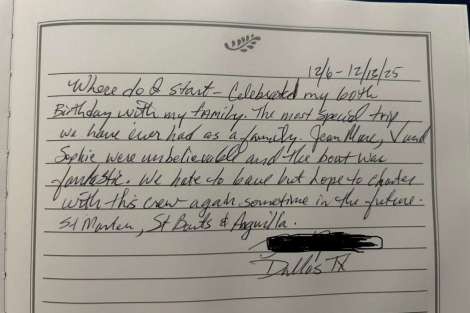 12/6-12/12/25
Where do I start - Celebrated my 60th
Birthday with my family. The most special trip
we have ever had as a family. Jean Marc, V and
Sophie were unbelievable and the boat was
fantastic. We hate to leave but hope to charter
with this crew again sometime in the future.
St Marten, St Barts & Anguilla.
Dallas TX